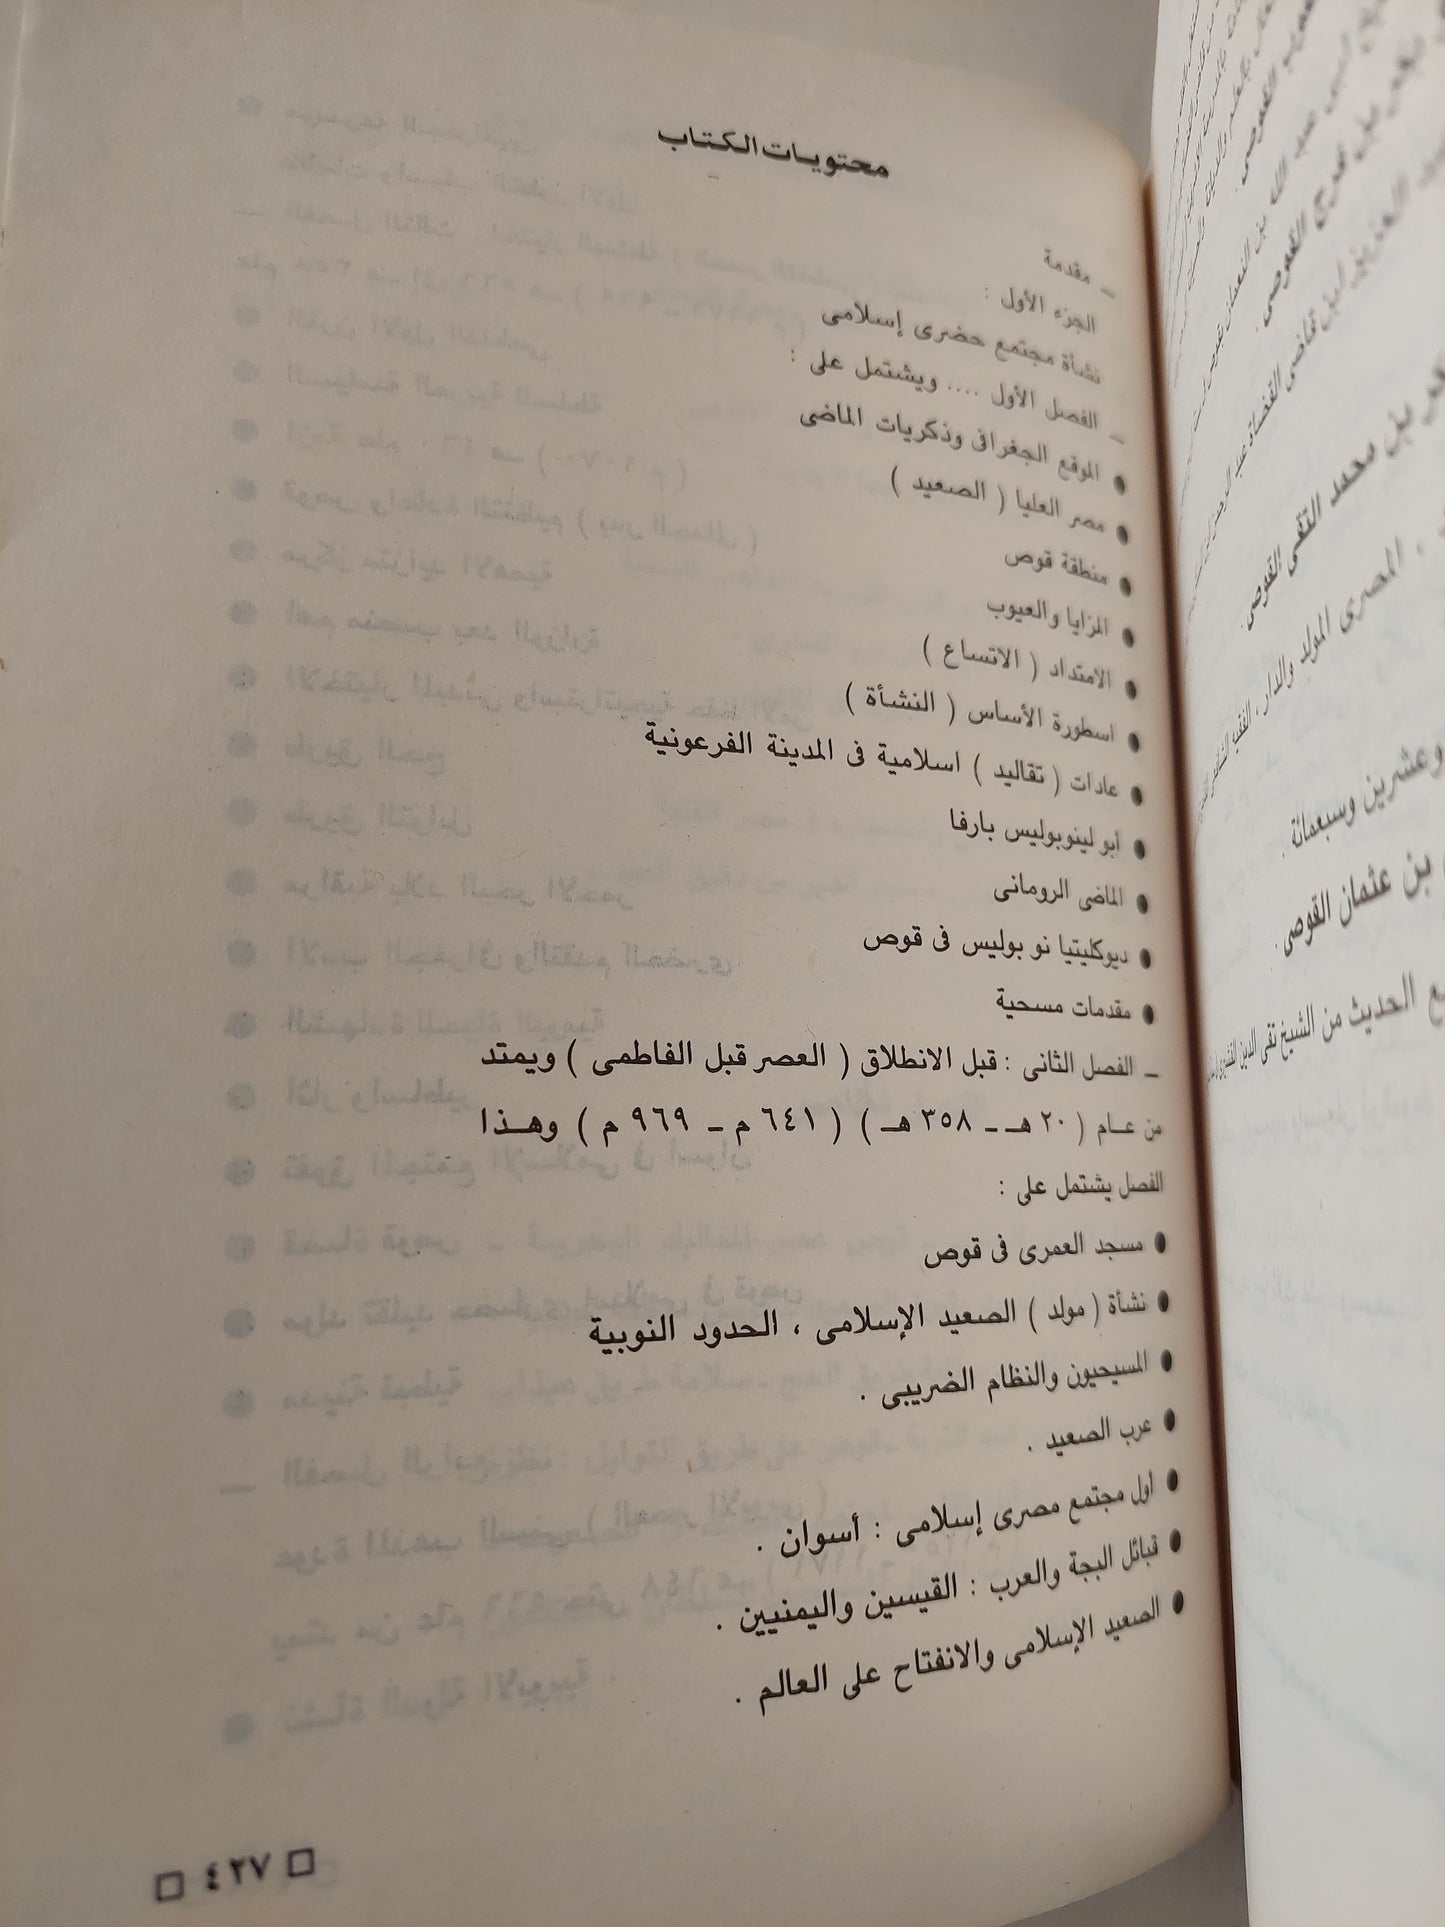 محتويات الكتاب
ـ مقدمة
الجزء الأول :
نشأة مجتمع حضرى إسلامى
ـ الفصل الأول .... ويشتمل على :
● الموقع الجغرافى وذكريات الماضى
● مصر العليا ( الصعيد )
● منطقة قوص
● المزايا والعيوب
● الامتداد ( الاتساع )
● اسطورة الأساس ( النشأة )
● عادات ( تقاليد ) اسلامية فى المدينة الفرعونية
● أبو لينوبوليس بارفا
● الماضى الرومانى
● ديوكليتيا نو بوليس فى قوص
● مقدمات مسحية
ـ الفصل الثانى : قبل الانطلاق ( العصر قبل الفاطمى ) ويمتد
من عـام ( ٢٠ هـ ـ ٣٥٨ هـ ) ( ٦٤١ م ـ ٩٦٩ م ) وهـذا
الفصل يشتمل على :
● مسجد العمرى فى قوص
● نشأة ( مولد ) الصعيد الإسلامى ، الحدود النوبية
● المسيحيون والنظام الضريبى .
● عرب الصعيد .
● اول مجتمع مصرى إسلامى : أسوان .
● قبائل البجة والعرب : القيسين واليمنيين .
● الصعيد الإسلامى والانفتاح على العالم .
□ ٤٢٧ □
بن محمد التقى القوصى .
، المصرى المولد والدار ،
وعشرين وسبعمائة .
بن عثمان القوصى .
الحديث من الشيخ تقى الدين